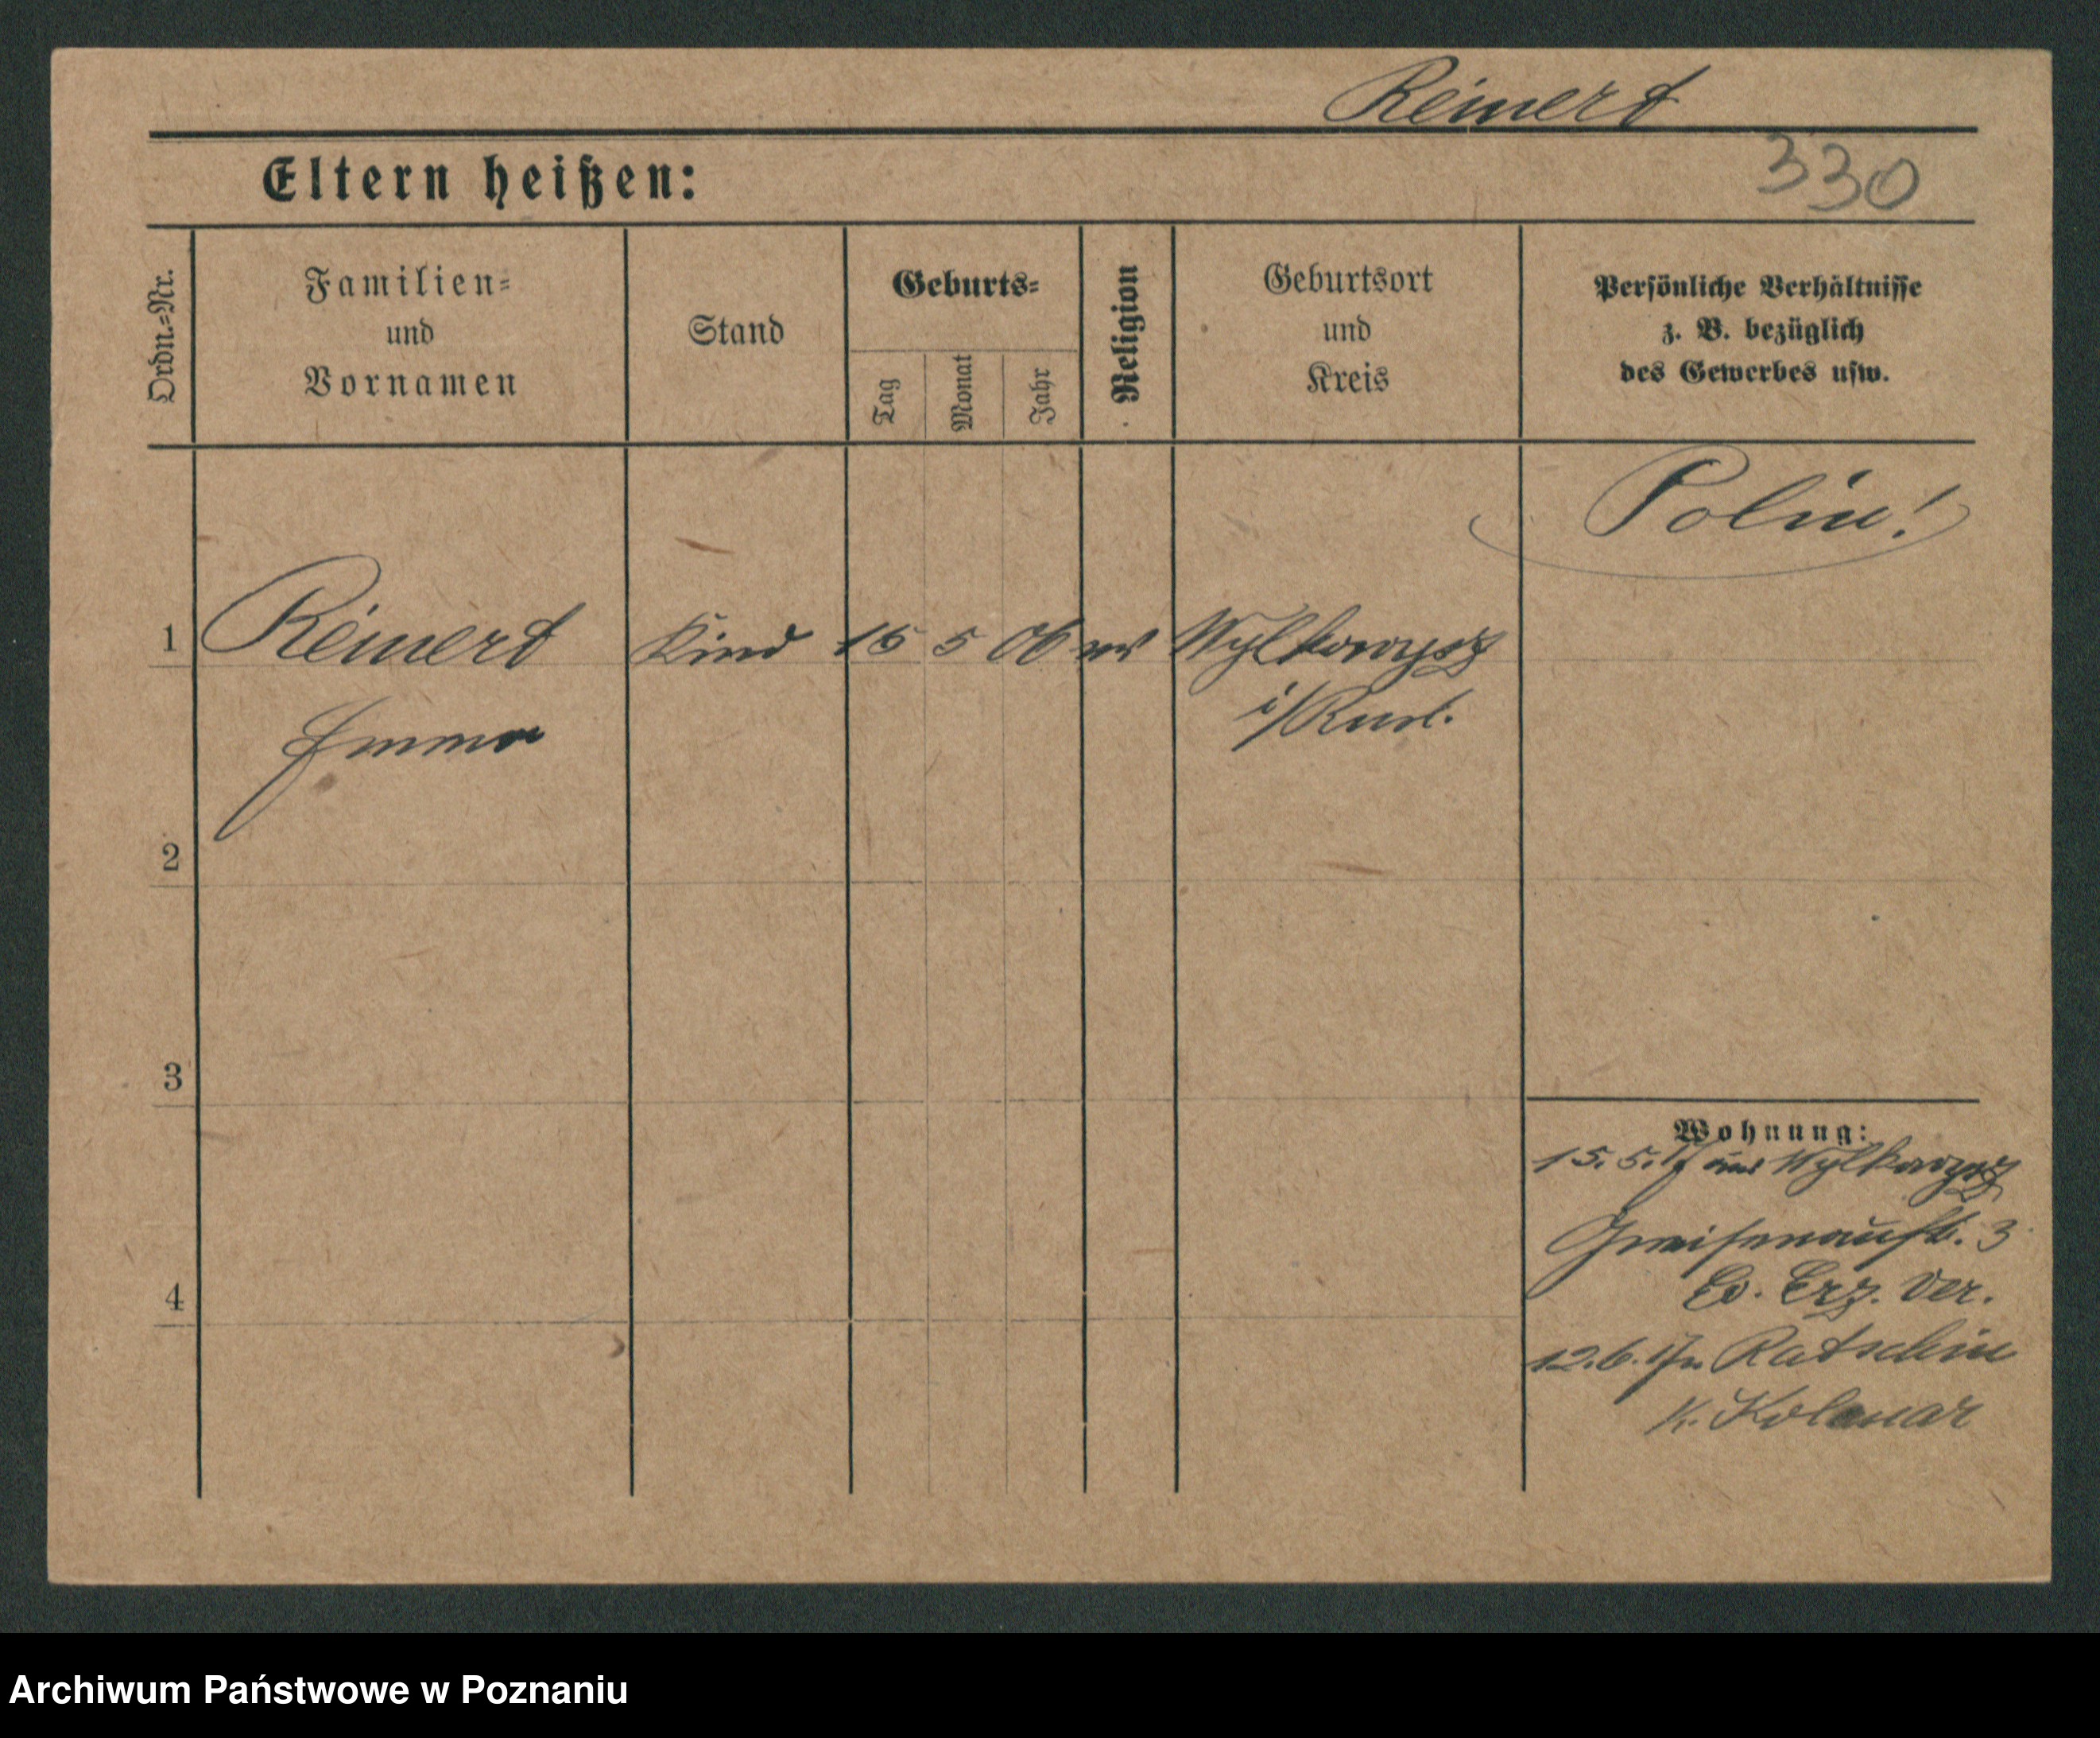 Reinert
Eltern heißen:
330
Ordn.=Nr.
Familien=
und
Vornamen
Stand
Geburts=
Tag
Monat
Jahr
Religion
Geburtsort
und
Kreis
Persönliche Verhältnisse
z. B. bezüglich
des Gewerbes usw.
Polin!
1
Reinert
Kind
15
5
06
ev
i/Rusl.
Emma
2
3
4
Wohnung:
15. 5. 17 aus
Gneisenaustr. 3
Ev. Erz. Ver.
12. 6. 17 n. Ratschin
K. Kolmar
Archiwum Państwowe w Poznaniu